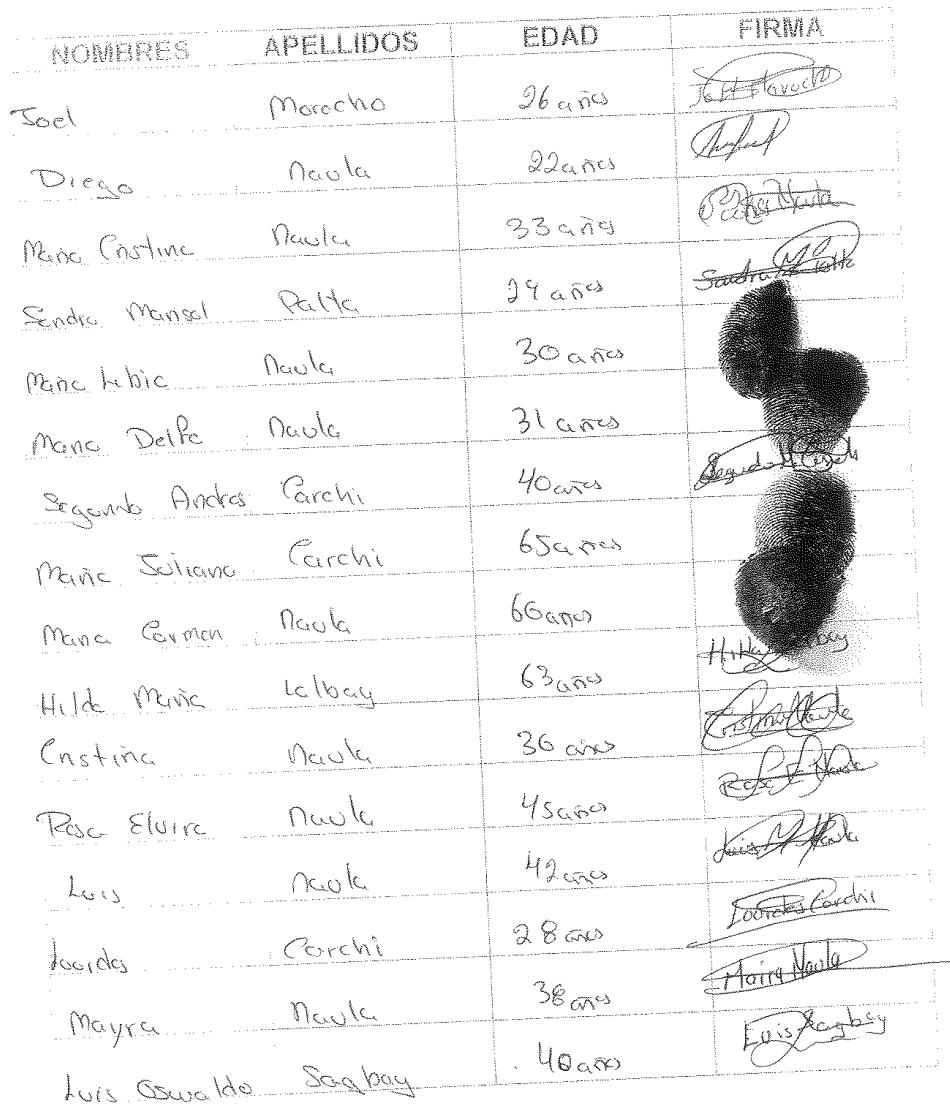 NOMBRES APELLIDOS EDAD FIRMA
Joel Morocho 26 años Joel Morocho
Diego Naula 22 años
Maria Cristina Naula 33 años Naula
Sandra Marisol Palta 29 años Sandra M Palta
Maria Naula 30 años
Maria Delfa Naula 31 años
Segundo Andres Carchi 40 años Segundo
Maria Juliana Carchi 65 años
Maria Carmen Naula 66 años
Hilda Maria Lalbay 63 años Hilda
Cristina Naula 36 años Cristina Naula
Rosa Elvira Naula 45 años Rosa E Naula
Luis Naula 42 años Luis M Naula
Lourdes Carchi 28 años Lourdes Carchi
Mayra Naula 38 años Maira Naula
Luis Oswaldo Sagbay 40 años Luis Sagbay